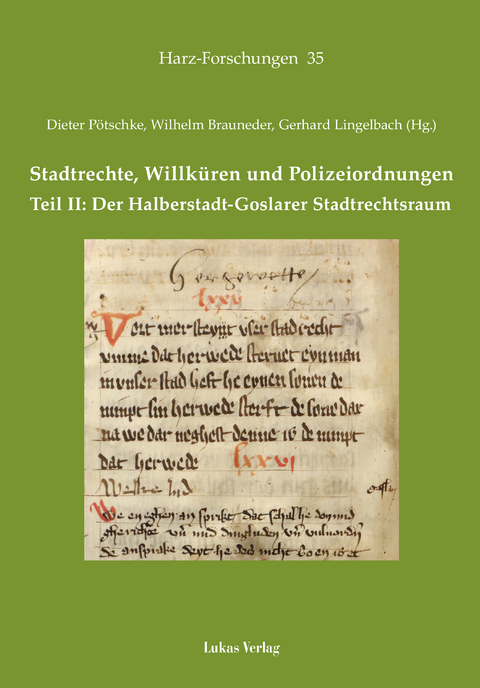 Harz-Forschungen 35
Dieter Pötschke, Wilhelm Brauneder, Gerhard Lingelbach (Hg.)
Stadtrechte, Willküren und Polizeiordnungen
Teil II: Der Halberstadt-Goslarer Stadtrechtsraum
lxxv
Vort mer steyyt vser stad recht
vmme dat herwede steruet eyn man
in vnser stad heft he eynen sonen de
nimpt sin herwede sterft de sone dar
na we dar neghest denne is de nimpt
dat herwede lxxvi
We en eghen an sprikt dat schal he
de ansprake
Lukas Verlag